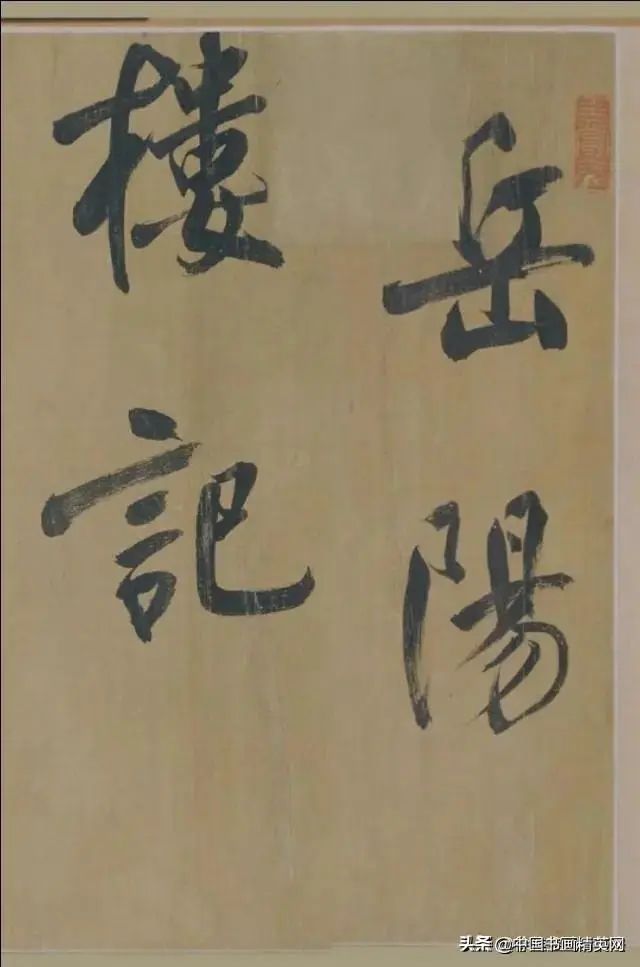 岳陽
樓記
头条 @中国书画精英网